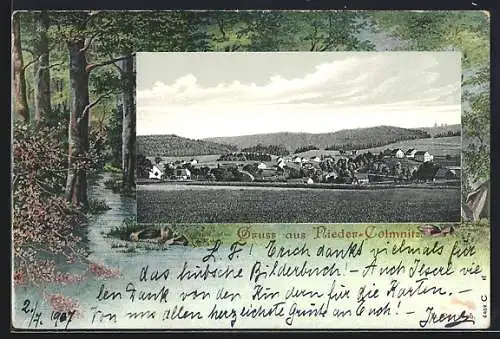 Gruss aus Nieder-Colmnitz
L. F.! Erich dankt vielmals für
das hübsche Bilderbuch! - Auch Itsere vie
len Dank von den Kindern für die Karten. -
2./7. 1907 Von uns allen herzlichste Grüße an Euch! - Irene